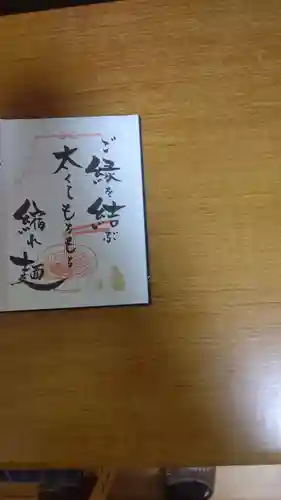 ご縁を結ぶ
太くてもちもち
縮れ麺